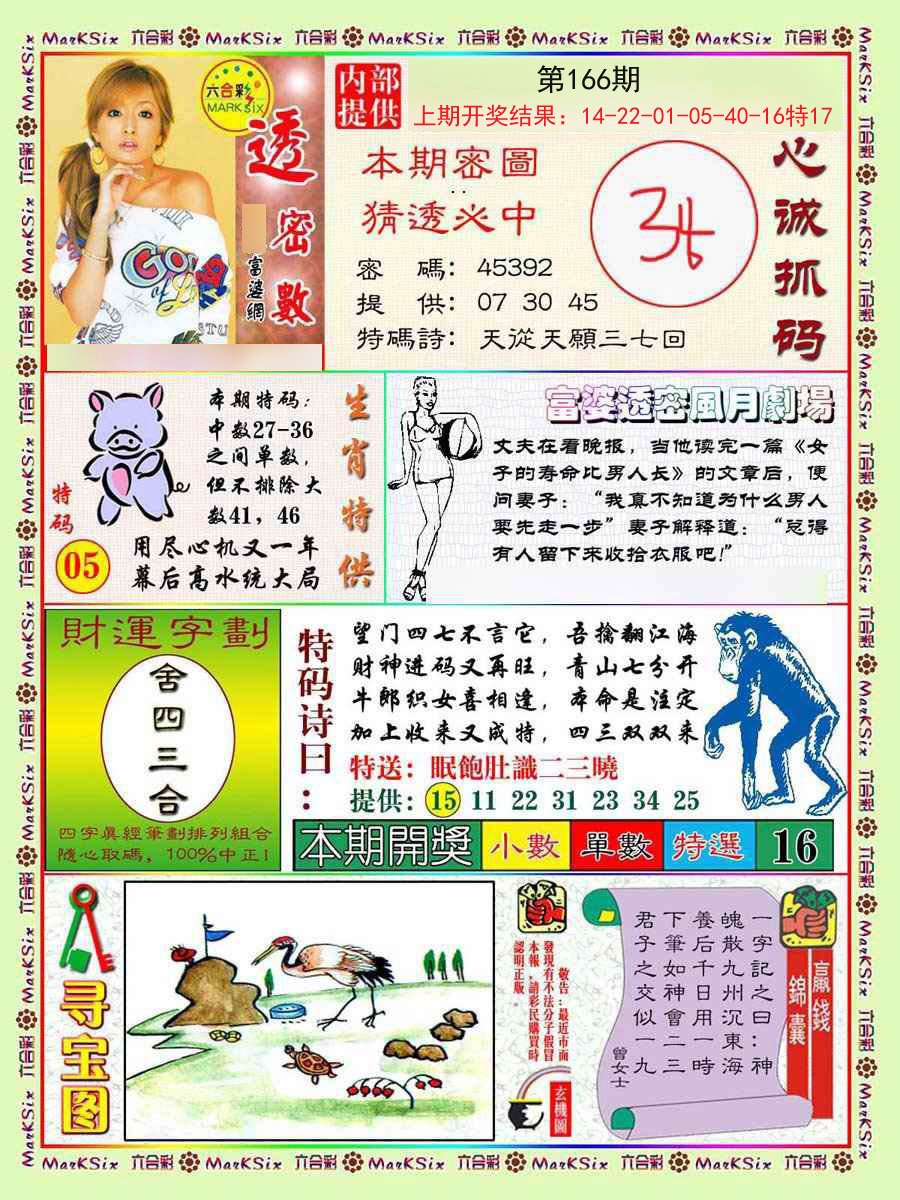 MarKSix 六合彩 MarKSix 六合彩 MarKSix 六合彩 MarKSix 六合彩 MarKSix 六合彩
六合彩
MARK SIX
透密數
富婆網
内部
提供
第166期
上期开奖结果：14-22-01-05-40-16特17
本期密圖
猜透必中
密 碼：45392
提 供：07 30 45
特碼詩：天從天願三七回
心诚抓码
本期特码：
中数27-36
之间单数，
但不排除大
数41，46
特码
05
用尽心机又一年
幕后高水统大局
生肖特供
富婆透密風月劇場
丈夫在看晚报，当他读完一篇《女
子的寿命比男人长》的文章后，便
问妻子：“我真不知道为什么男人
要先走一步”妻子解释道：“总得
有人留下来收拾衣服吧！”
財運字劃
舍四三合
四字真經筆劃排列組合
隨心取碼，100%中正！
特码诗曰：
望门四七不言它，吾擒翻江海
财神进码又再旺，青山七分开
牛郎织女喜相逢，本命是注定
加上收来又成特，四三双双来
特送：眠飽肚識二三曉
提供：15 11 22 31 23 34 25
本期開獎 小數 單數 特選 16
寻宝图
敬告：最近市面
發現有不法分子假冒
本報，請彩民購買時
認明正版。
玄機圖
一字記之曰：神
魄散九州沉東海
養后千日用一時
下筆如神會二三
君子之交似一九
曾女士
贏錢
錦囊
MarKSix 六合彩 MarKSix 六合彩 MarKSix 六合彩 MarKSix 六合彩 MarKSix 六合彩